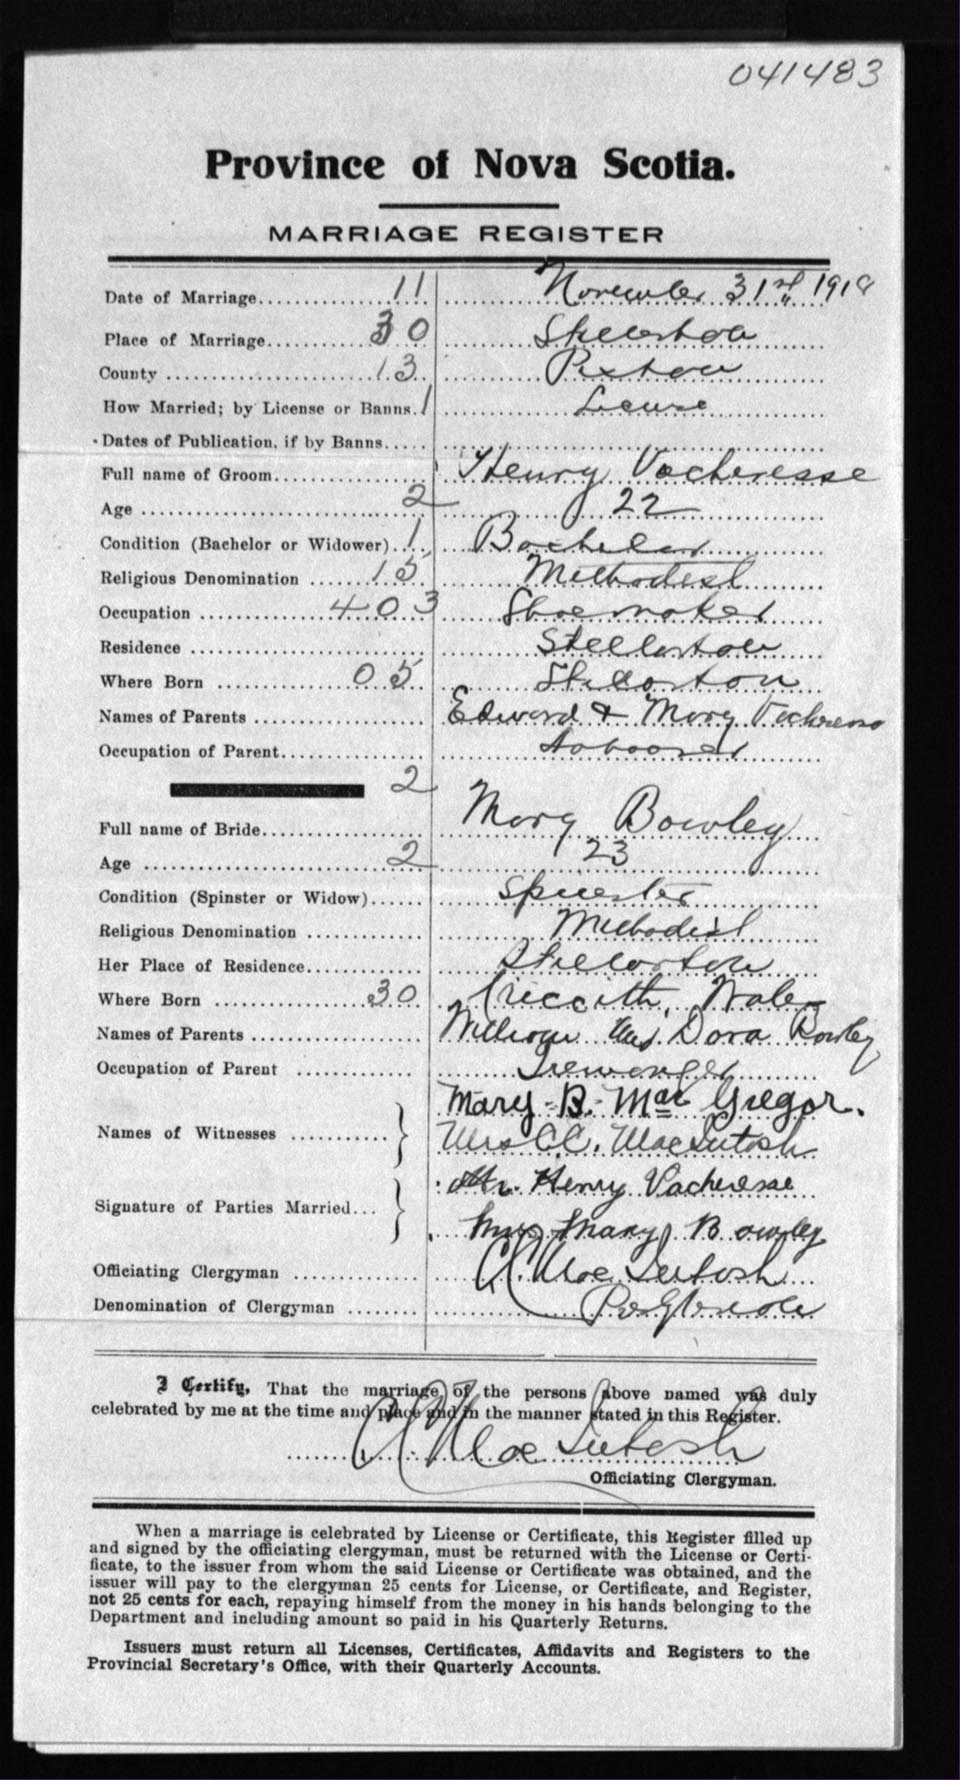 041483
Province of Nova Scotia.
MARRIAGE REGISTER
Date of Marriage 11 November 31st 1918
Place of Marriage 30 Stellarton
County 13 Pictou
How Married; by License or Banns. 1 License
Dates of Publication, if by Banns
Full name of Groom Henry Vacheresse
Age 2 22
Condition (Bachelor or Widower) 1 Bachelor
Religious Denomination 15 Methodist
Occupation 403 Shoemaker
Residence Stellarton
Where Born 05 Stellarton
Names of Parents Edward & Mary
Occupation of Parent
2
Full name of Bride Mary Bowley
Age 2 23
Condition (Spinster or Widow) Spinster
Religious Denomination Methodist
Her Place of Residence Stellarton
Where Born 30 Wales
Names of Parents William and Dora Bowley
Occupation of Parent
Mary B. Mac Gregor.
Names of Witnesses
Mrs C.C. MacIntosh
Mr. Henry Vacheresse
Signature of Parties Married
Mrs Mary Bowley
Officiating Clergyman MacIntosh
Denomination of Clergyman
I Certify, That the marriage of the persons above named was duly
celebrated by me at the time and place and in the manner stated in this Register.
MacIntosh
Officiating Clergyman.
When a marriage is celebrated by License or Certificate, this Register filled up
and signed by the officiating clergyman, must be returned with the License or Certi-
ficate, to the issuer from whom the said License or Certificate was obtained, and the
issuer will pay to the clergyman 25 cents for License, or Certificate, and Register,
not 25 cents for each, repaying himself from the money in his hands belonging to the
Department and including amount so paid in his Quarterly Returns.
Issuers must return all Licenses, Certificates, Affidavits and Registers to the
Provincial Secretary's Office, with their Quarterly Accounts.